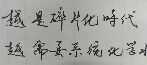 越是碎片化时代
越需要系统化学习